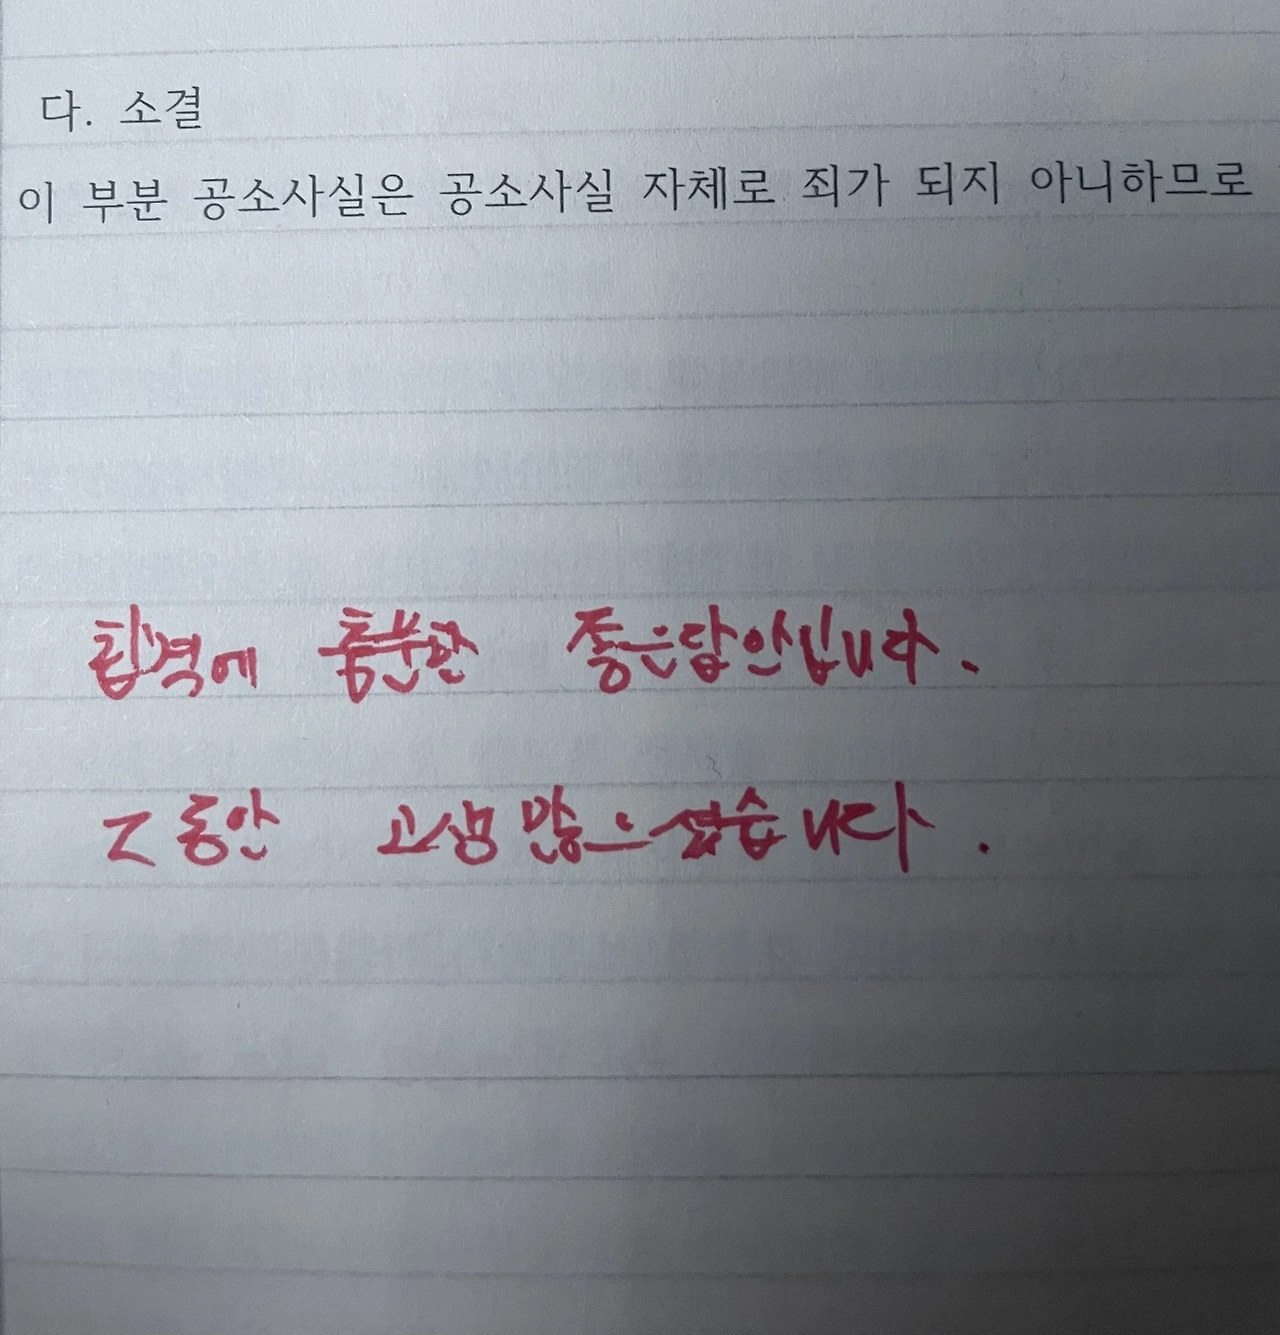 다. 소결
이 부분 공소사실은 공소사실 자체로 죄가 되지 아니하므로
합격에 충분한 좋은답안입니다.
그동안 고생 많으셨습니다.